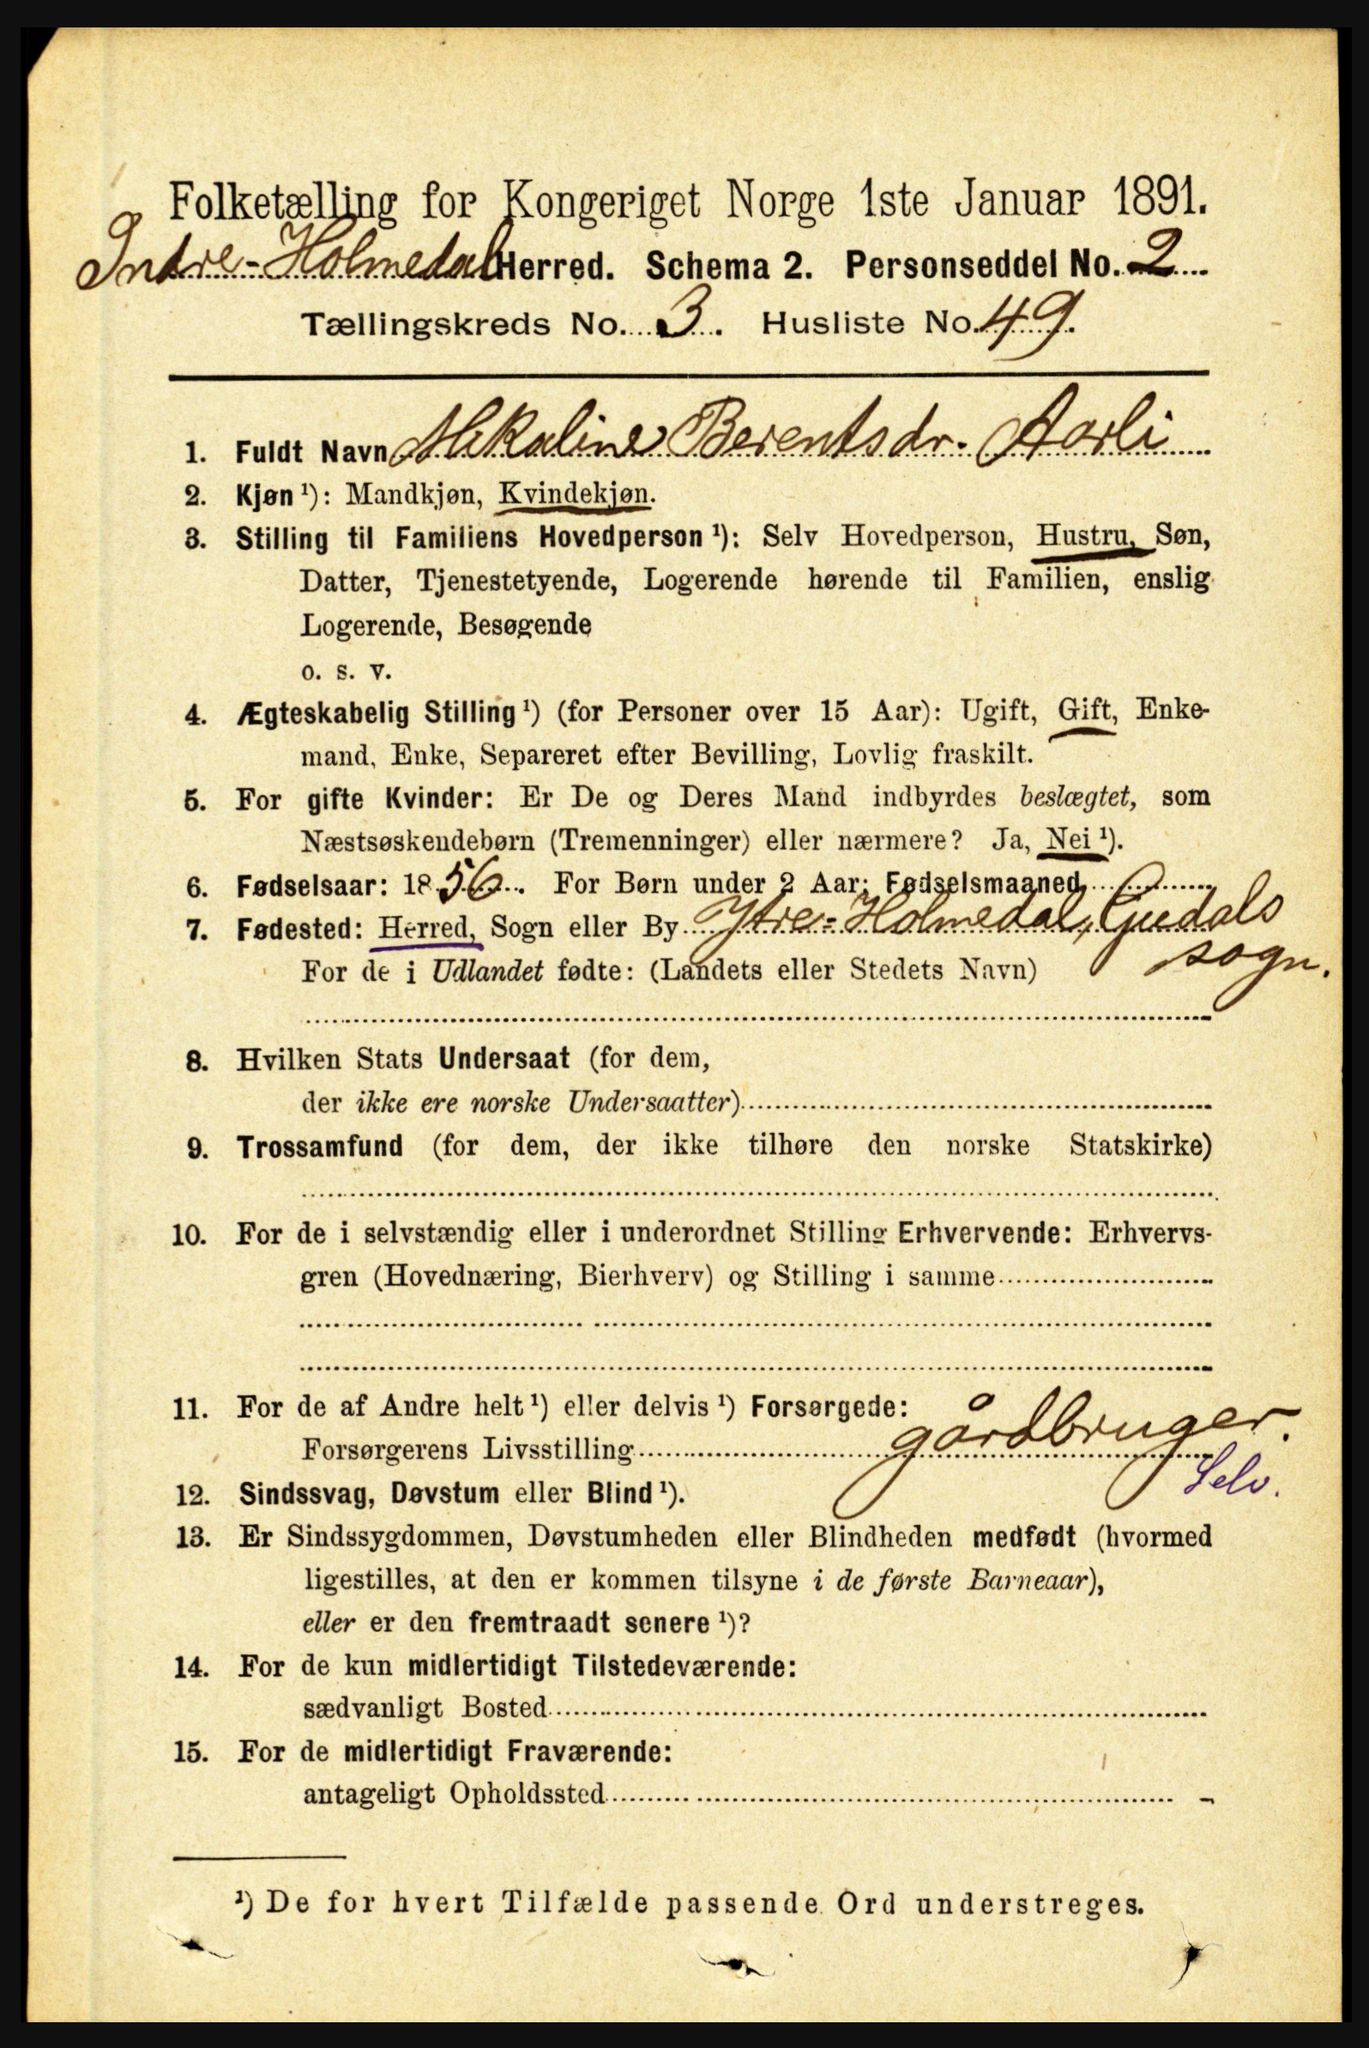 Folketælling for Kongeriget Norge 1ste Januar 1891.
Indre-Holmedal Herred. Schema 2. Personseddel No. 2
Tællingskreds No. 3. Husliste No. 49.
1. Fuldt Navn Alkaline Berentsdr. Aarli
2. Kjøn ¹): Mandkjøn, Kvindekjøn.
3. Stilling til Familiens Hovedperson ¹): Selv Hovedperson, Hustru, Søn,
Datter, Tjenestetyende, Logerende hørende til Familien, enslig
Logerende, Besøgende
o. s. v.
4. Ægteskabelig Stilling ¹) (for Personer over 15 Aar): Ugift, Gift, Enke-
mand, Enke, Separeret efter Bevilling, Lovlig fraskilt.
5. For gifte Kvinder: Er De og Deres Mand indbyrdes beslægtet, som
Næstsøskendebørn (Tremenninger) eller nærmere? Ja, Nei ¹).
6. Fødselsaar: 1856. For Børn under 2 Aar: Fødselsmaaned
7. Fødested: Herred, Sogn eller By Ytre-Holmedal, Guedals
sogn.
For de i Udlandet fødte: (Landets eller Stedets Navn)
8. Hvilken Stats Undersaat (for dem,
der ikke ere norske Undersaatter)
9. Trossamfund (for dem, der ikke tilhøre den norske Statskirke)
10. For de i selvstændig eller i underordnet Stilling Erhvervende: Erhvervs-
gren (Hovednæring, Bierhverv) og Stilling i samme
11. For de af Andre helt ¹) eller delvis ¹) Forsørgede:
Forsørgerens Livsstilling gårdbruger.
Selv.
12. Sindssvag, Døvstum eller Blind ¹).
13. Er Sindssygdommen, Døvstumheden eller Blindheden medfødt (hvormed
ligestilles, at den er kommen tilsyne i de første Barneaar),
eller er den fremtraadt senere ¹)?
14. For de kun midlertidigt Tilstedeværende:
sædvanligt Bosted
15. For de midlertidigt Fraværende:
antageligt Opholdssted
¹) De for hvert Tilfælde passende Ord understreges.